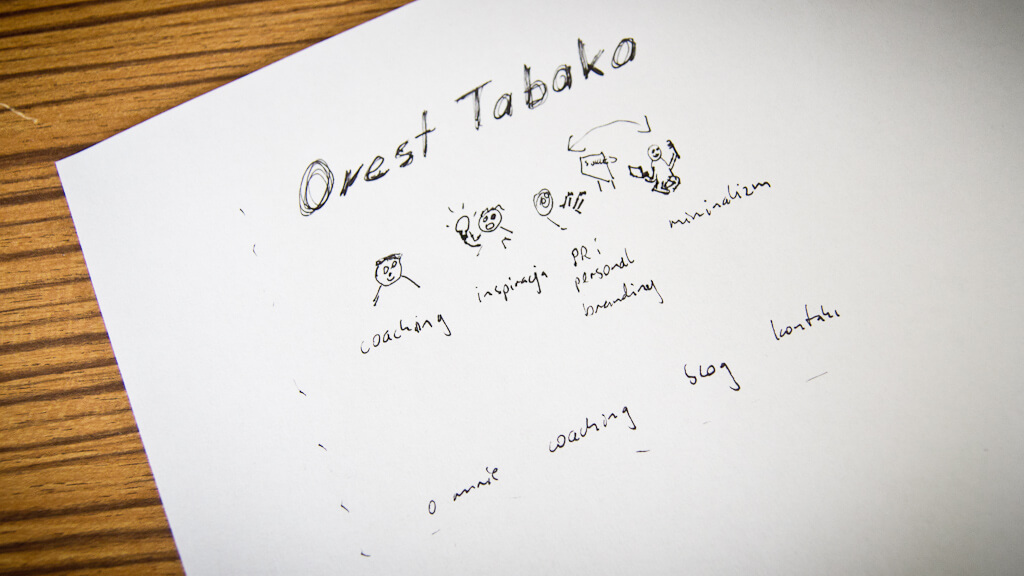 Orest Tabako
coaching
inspiracja
PR i
personal
branding
minimalizm
o mnie
coaching
blog
kontakt